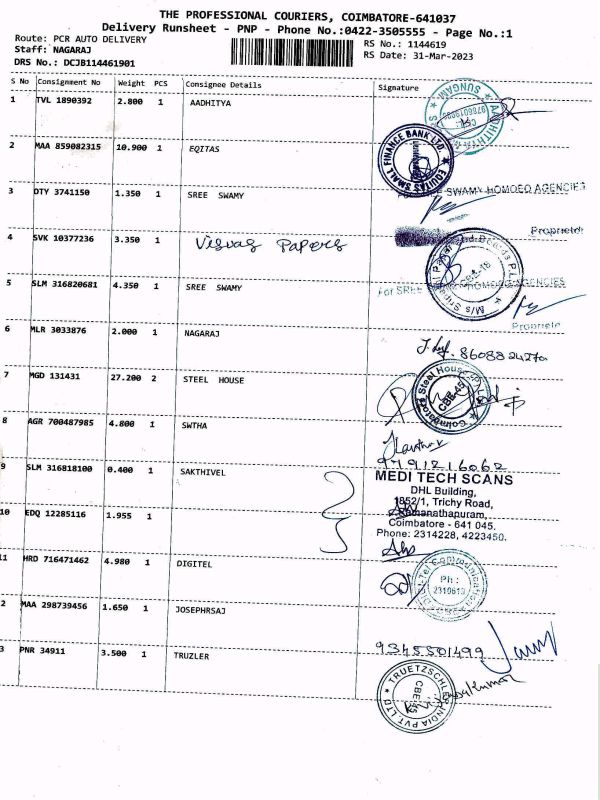 THE PROFESSIONAL COURIERS, COIMBATORE-641037
Delivery Runsheet - PNP - Phone No.:0422-3505555 - Page No.:1
Route: PCR AUTO DELIVERY
Staff: NAGARAJ
DRS No.: DCJB114461901
RS No.: 1144619
RS Date: 31-Mar-2023
S No Consignment No Weight PCS Consignee Details Signature
1 TVL 1890392 2.800 1 AADHITYA
SUNGAM
2 MAA 859082315 10.900 1 EQITAS
EQUITAS SMALL FINANCE BANK LTD.
3 DTY 3741150 1.350 1 SREE SWAMY
SWAMY HOMOEO AGENCIES
4 SVK 10377236 3.350 1 Visvas Papers
5 SLM 316820681 4.350 1 SREE SWAMY
For SREE SWAMY HOMOEO AGENCIES
CBE-18
6 MLR 3033876 2.000 1 NAGARAJ
7 MGD 131431 27.200 2 STEEL HOUSE
Coimbatore Steel House
CBE-45
8 AGR 700487985 4.800 1 SWTHA
9 SLM 316818100 0.400 1 SAKTHIVEL
9791216062
MEDI TECH SCANS
DHL Building,
1852/1, Trichy Road,
Ramanathapuram,
Coimbatore - 641 045.
Phone: 2314228, 4223450.
10 EDQ 12285116 1.955 1
11 HRD 716471462 4.980 1 DIGITEL
Ph :
2319613
2 MAA 298739456 1.650 1 JOSEPHRSAJ
9345501499
3 PNR 34911 3.500 1 TRUZLER
TRUETZSCHLER INDIA PVT LTD
CBE-45